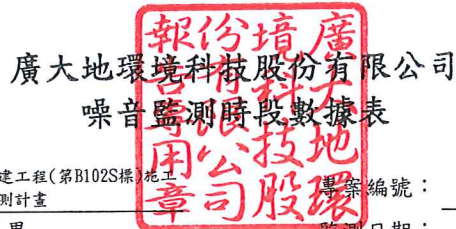 廣大地環境科技股份有限公司
噪音監測時段數據表
廣大地環
境科技股
份有限公司
報告專用章
建工程(第B102S標)施工
測計畫
專案編號：
監測日期：